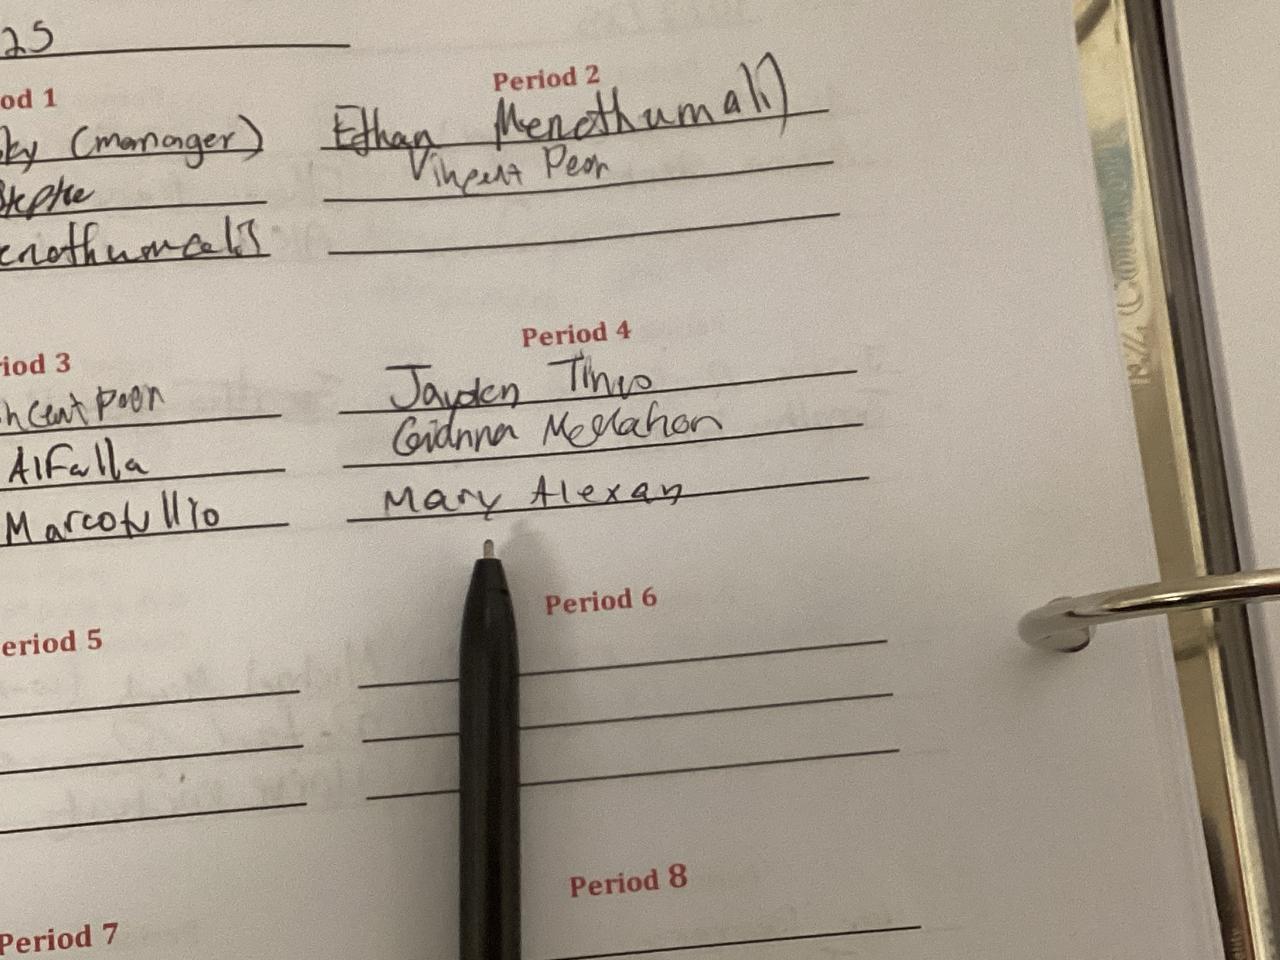 25
od 1
Period 2
ky (manager)
Ethan Menothumali)
Stephe
Vincent Poon
enothumali)
iod 3
Period 4
ncent poon
Jayden Tinio
AlFalla
Gianna McMahon
Marcotullio
Mary Alexan
eriod 5
Period 6
Period 7
Period 8